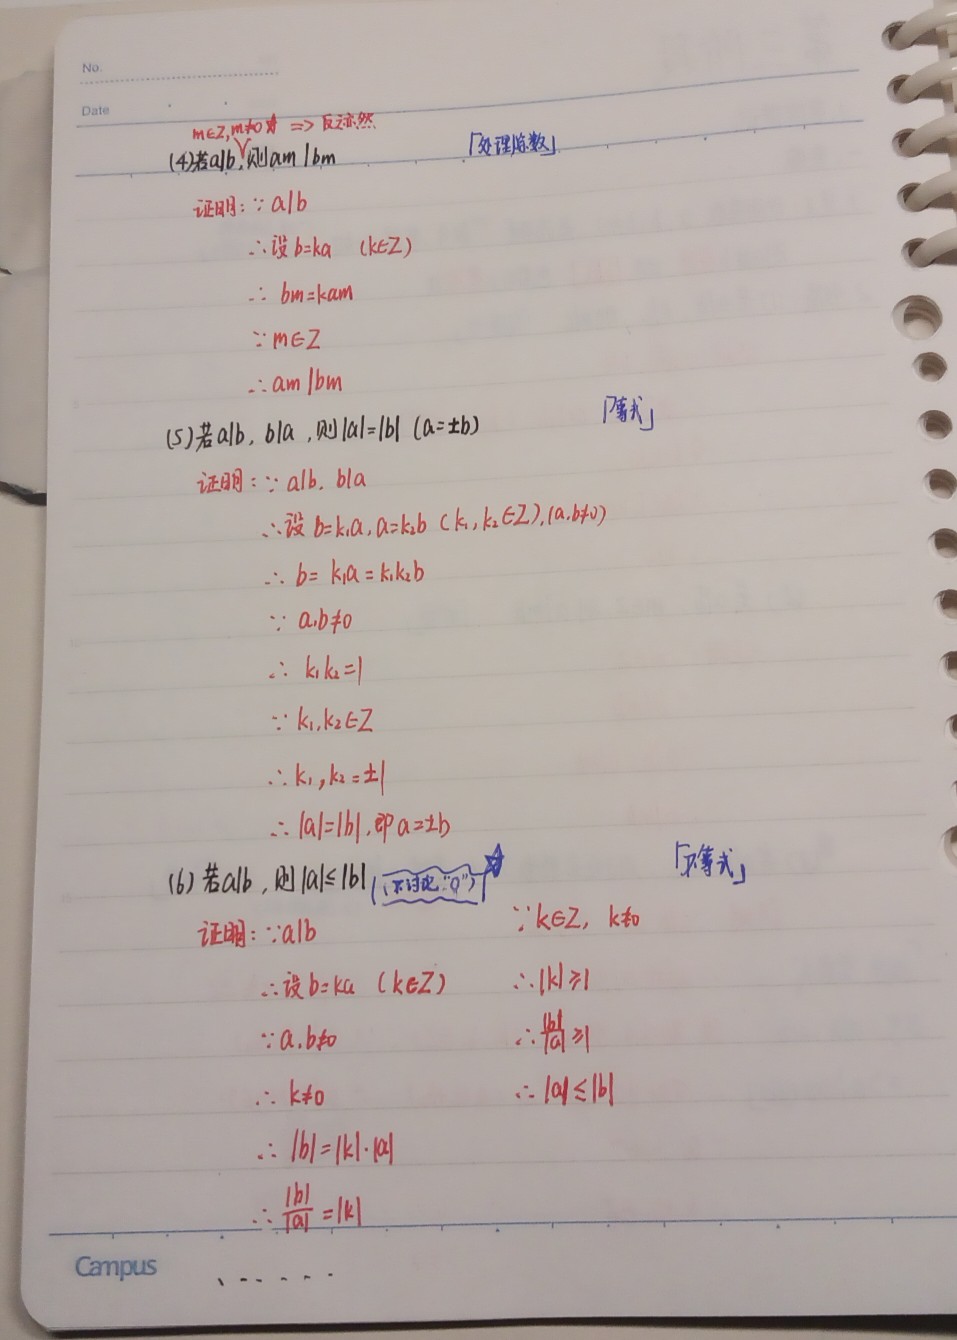 No.
Date
m∈Z, m≠0 ☆ => 反之亦然
(4)若a|b, 则am|bm 「处理除数」
证明: ∵ a|b
∴设 b=ka (k∈Z)
∴ bm=kam
∵ m∈Z
∴ am|bm
(5)若a|b, b|a, 则|a|=|b| (a=±b) 「等式」
证明: ∵ a|b, b|a
∴设 b=k₁a, a=k₂b (k₁, k₂∈Z), (a,b≠0)
∴ b= k₁a=k₁k₂b
∵ a,b≠0
∴ k₁k₂=1
∵ k₁,k₂∈Z
∴ k₁, k₂=±1
∴ |a|=|b|, 即 a=±b
(6) 若a|b, 则|a|≤|b| (不讨论"0") ☆ 「不等式」
证明: ∵a|b
∴设 b=ka (k∈Z)
∵ a,b≠0
∴ k≠0
∴ |b|=|k|·|a|
∴ |b|/|a| =|k|
∵ k∈Z, k≠0
∴ |k|≥1
∴ |b|/|a| ≥1
∴ |a|≤|b|
Campus